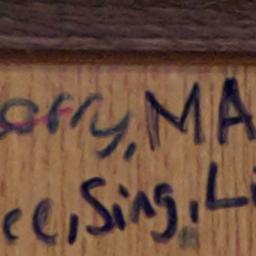 orry, MA
ce, Sing, Li